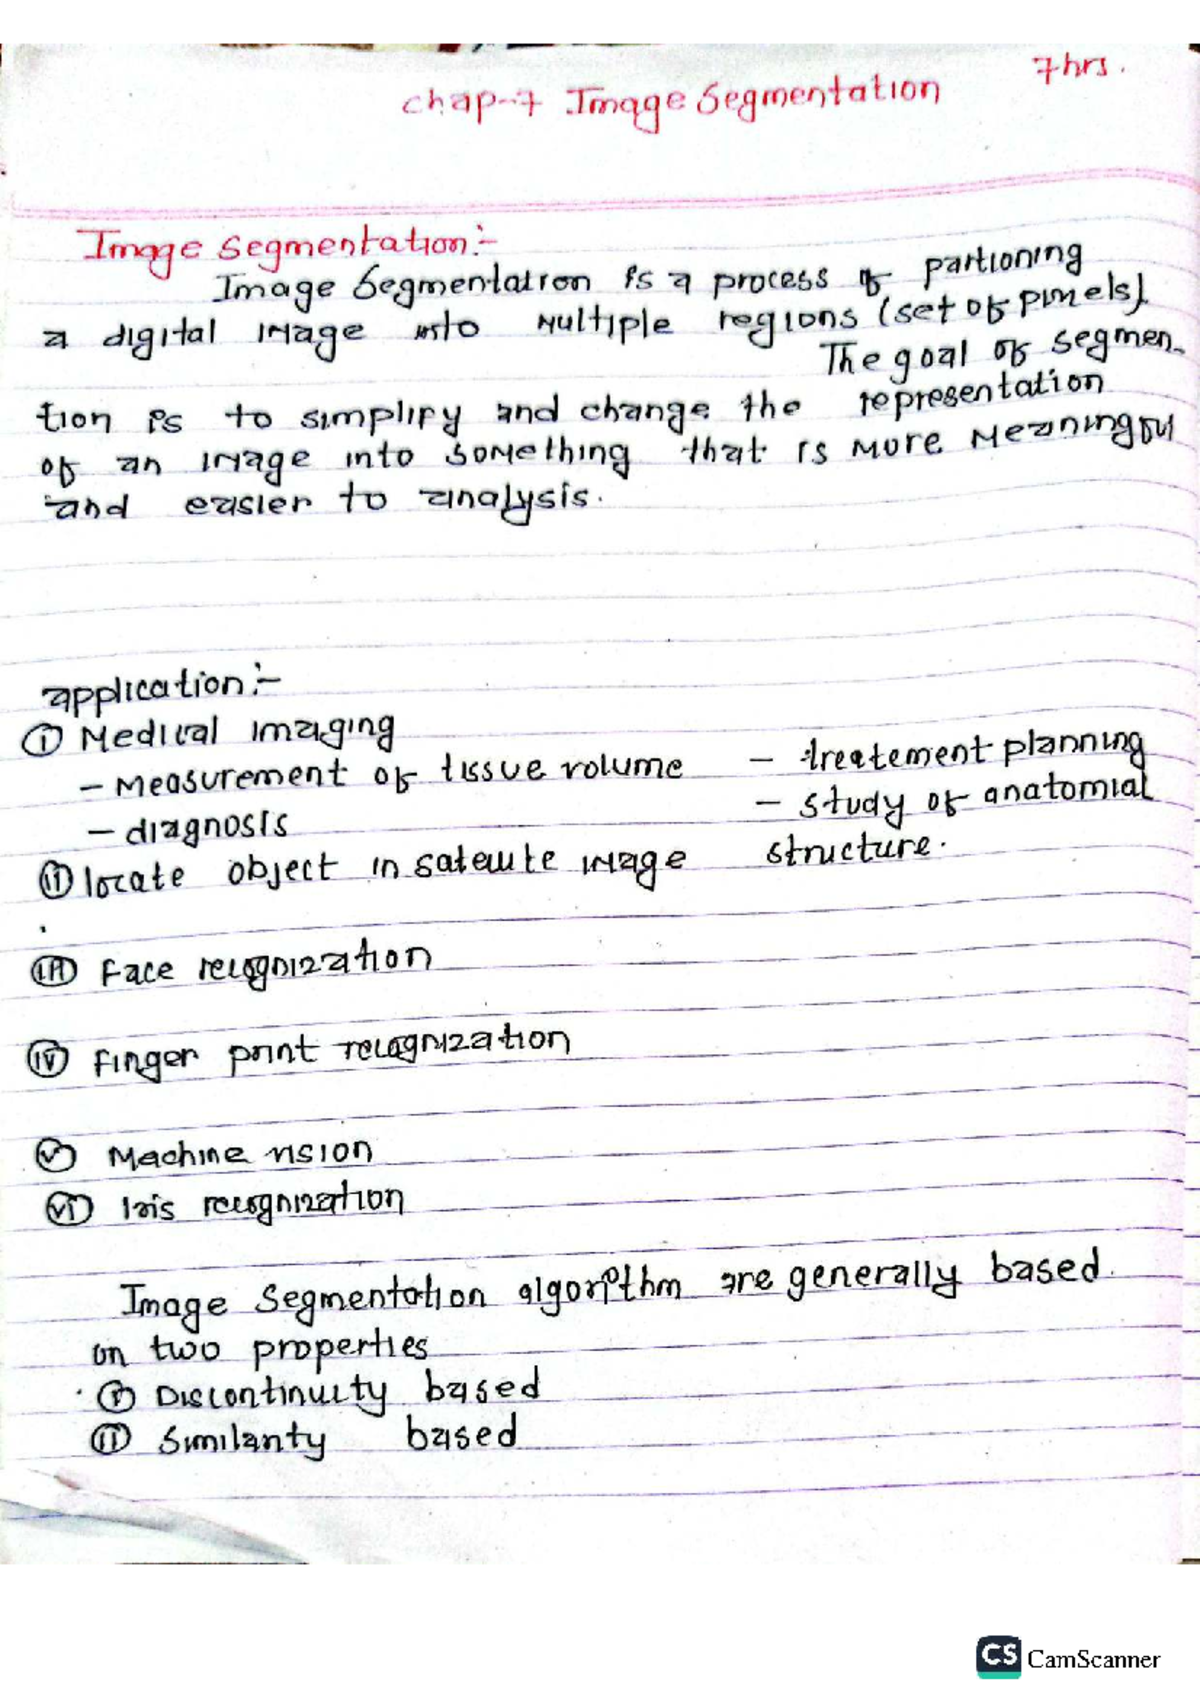 7hrs.
chap-7 Image Segmentation
Image segmentation:-
Image Segmentation is a process of partioning
a digital image into multiple regions (set of pixels).
The goal of segmen-
tion is to simplify and change the representation
of an image into something that is more meaningful
and easier to analysis.
application:-
(i) Medical imaging
- Measurement of tissue volume - treatement planning
- diagnosis - study of anatomial
structure.
(ii) locate object in satellite image
(iii) Face recognization
(iv) Finger print recognization
(v) Machine vision
(vi) Iris recognization
Image Segmentation algorithm are generally based
on two properties
(i) Discontinuity based
(ii) Similarity based
CS CamScanner